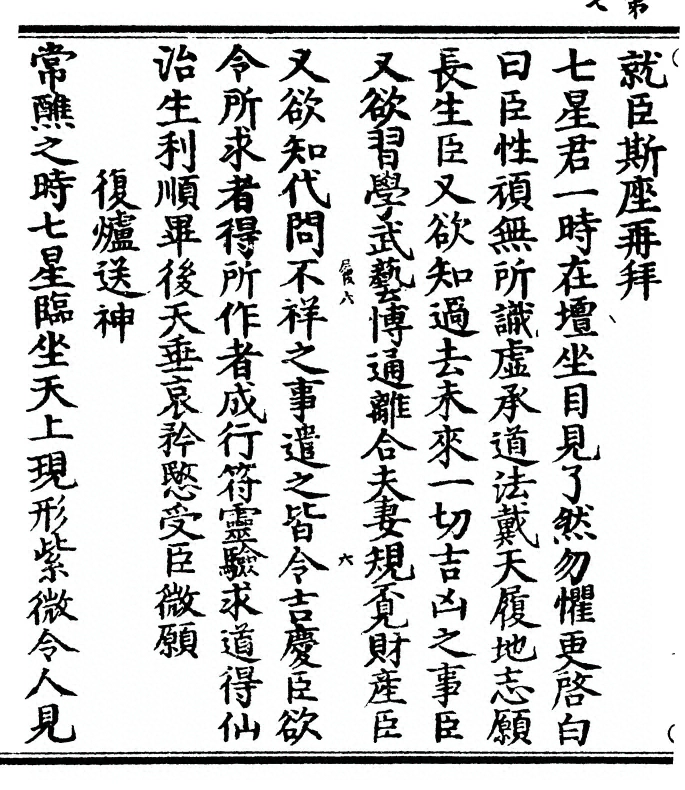 就臣斯座再拜
七星君一時在壇坐目見了然勿懼更啓白
曰臣性頑無所識虛承道法戴天履地志願
長生臣又欲知過去未來一切吉凶之事臣
又欲習學武藝博通離合夫妻規覓財產臣
六
又欲知代問不祥之事遣之皆令吉慶臣欲
令所求者得所作者成行符靈驗求道得仙
治生利順畢後天垂哀矜愍受臣微願
復爐送神
常醮之時七星臨坐天上現形紫微令人見